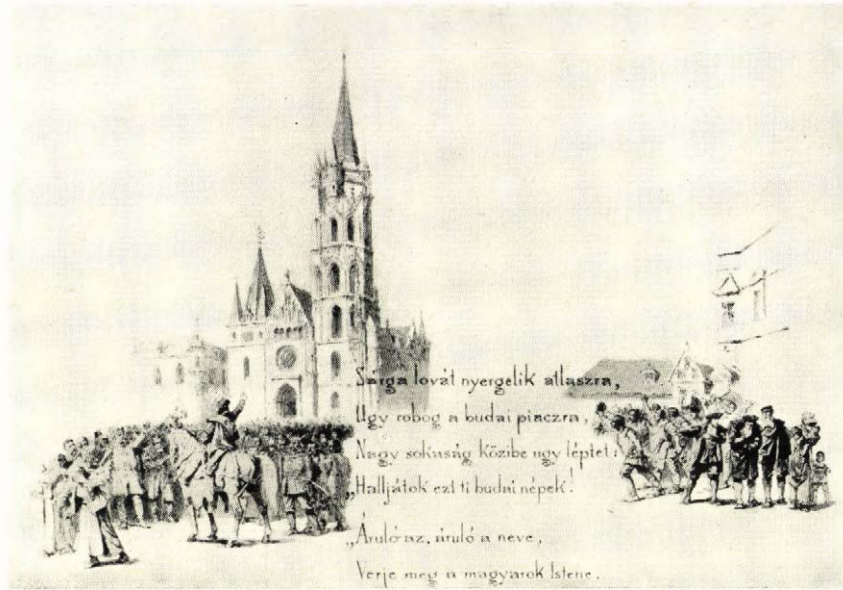 Sárga lovát nyergelik atlaszra,
Ugy robog a budai piaczra,
Nagy sokaság közibe ugy léptet:
„Halljátok ezt ti budai népek!
„Áruló az, áruló a neve,
Verje meg a magyarok Istene.